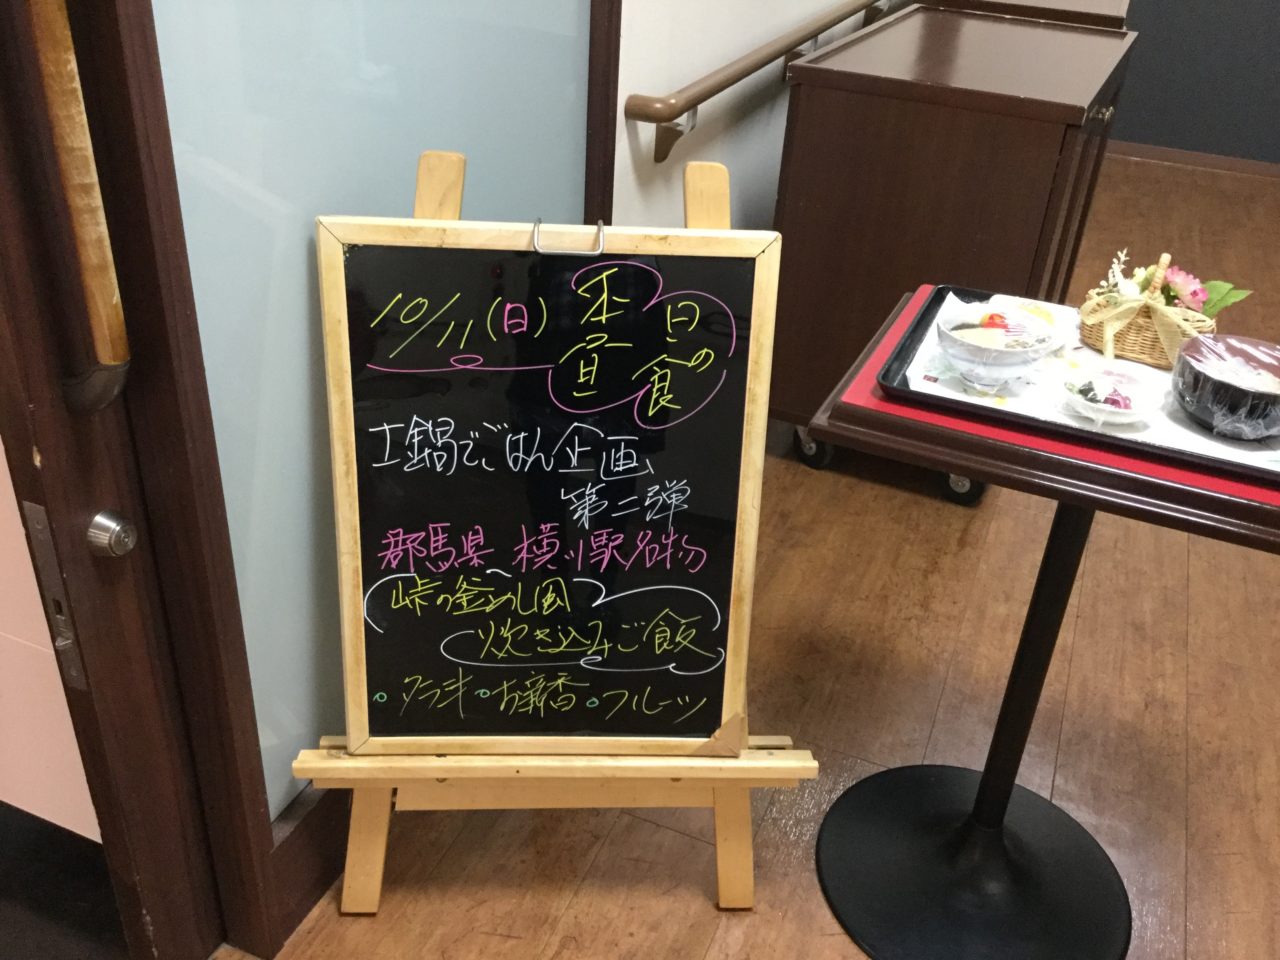 10/11(日) 本日の
昼食
土鍋でごはん企画
第二弾
群馬県 横川駅名物
峠の釜めし風
炊き込みご飯
。タラキ。お新香。フルーツ